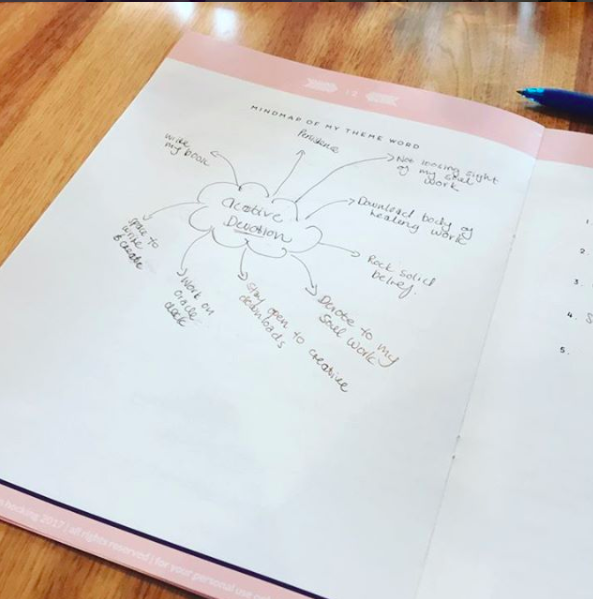 12
MINDMAP OF MY THEME WORD
Persistence
write
my book
Not loosing sight
of my soul
work
Creative
Devotion
Download body of
healing work
space to
write
& create
Rock solid
belief.
work on
oracle
deck
stay open to creative
downloads
Devote to my
soul work
1.
2.
3.
4. S
5.
2017 | all rights reserved | for your personal use